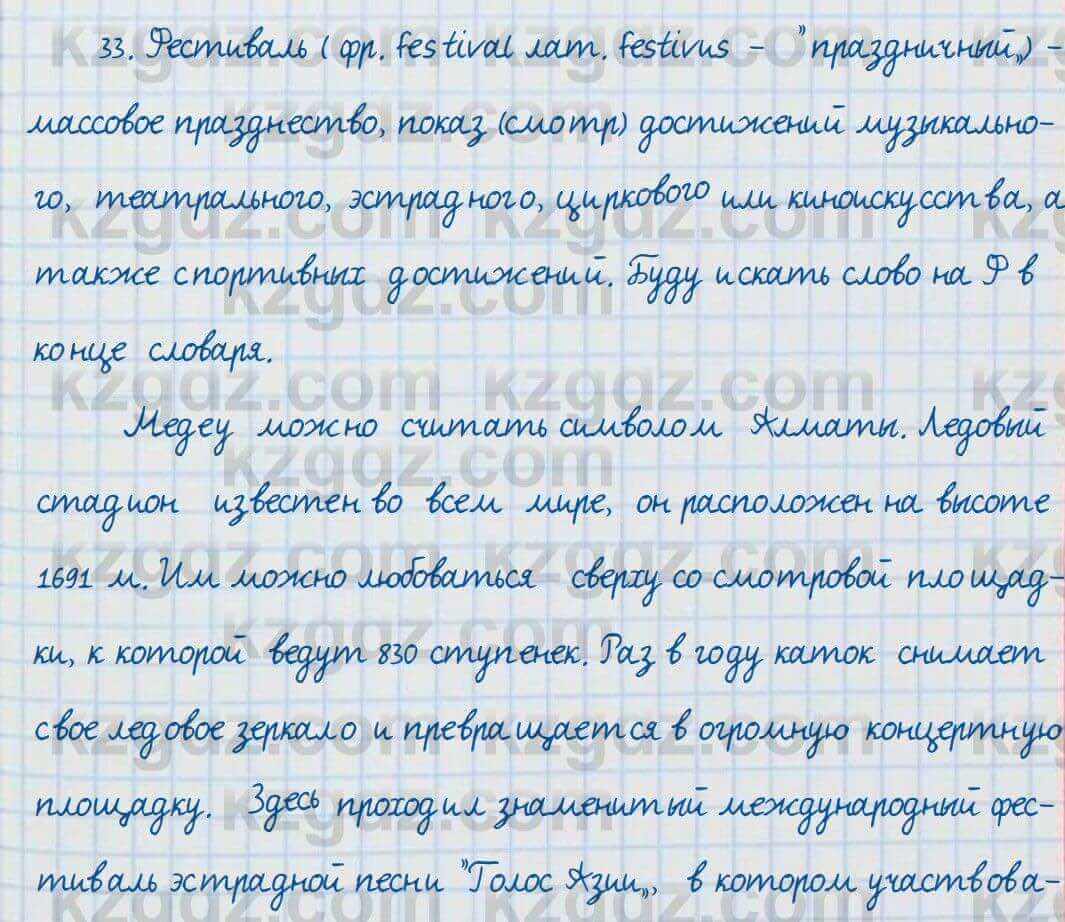 33. Фестиваль (фр. festival лат. festivus - "праздничный„) -
массовое празднество, показ (смотр) достижений музыкально-
го, театрального, эстрадного, циркового или киноискусства, а
также спортивных достижений. Буду искать слово на Ф в
конце словаря.
Медеу можно считать символом Алматы. Ледовый
стадион известен во всем мире, он расположен на высоте
1691 м. Им можно любоваться сверху со смотровой площад-
ки, к которой ведут 830 ступенек. Раз в году каток снимает
свое ледовое зеркало и превращается в огромную концертную
площадку. Здесь проходил знаменитый международный фес-
тиваль эстрадной песни "Голос Азии„, в котором участвова-